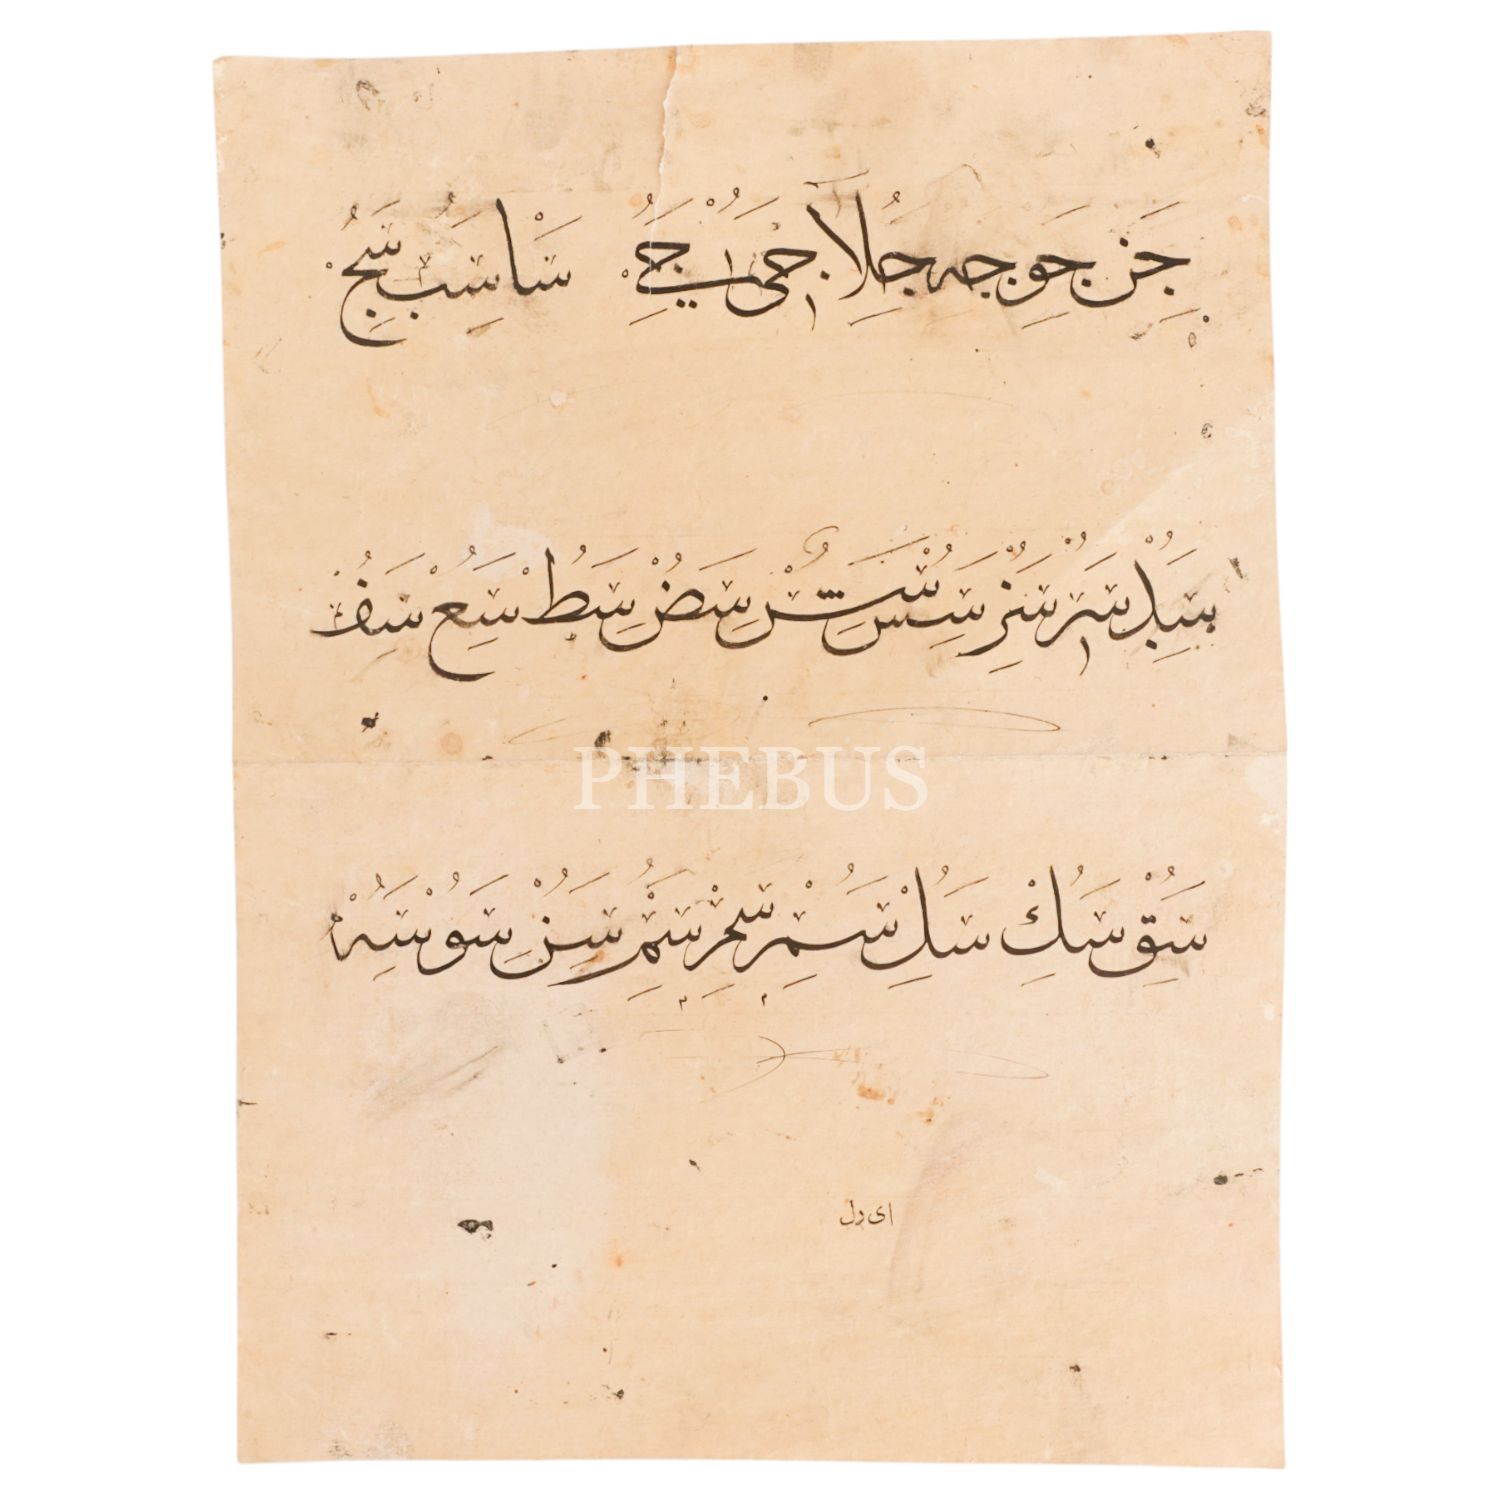 جن جو جه جلا جى جے سا سب سج
سد سر سر سس سش سص سط سع سف
سق سك سل سم سم سم سن سو سه
PHEBUS
اى دل